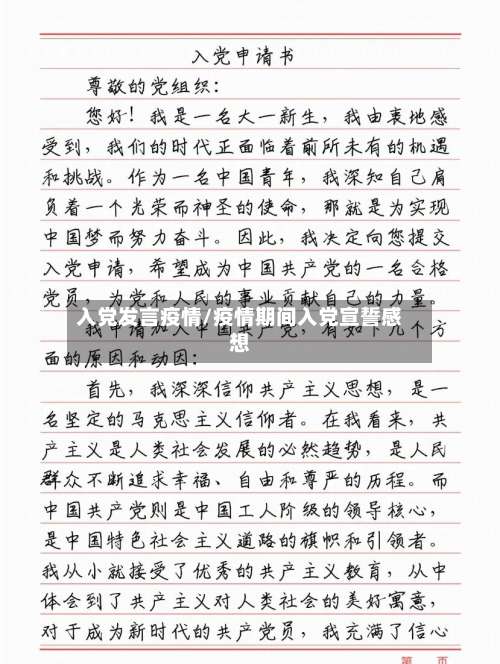 入党申请书
尊敬的党组织：
您好！我是一名大一新生，我由衷地感
受到，我们的时代正面临着前所未有的机遇
和挑战。作为一名中国青年，我深知自己肩
负着一个光荣而神圣的使命，那就是为实现
中国梦而努力奋斗。因此，我决定向您提交
入党申请，希望成为中国共产党的一名合格
党员，为党和人民的事业贡献自己的力量。
入党发言疫情/疫情期间入党宣誓感
想
我申请加入中国共产党，有如下几个方
面的原因和动因：
首先，我深深信仰共产主义思想，是一
名坚定的马克思主义信仰者。在我看来，共
产主义是人类社会发展的必然趋势，是人民
群众不断追求幸福、自由和尊严的历程。而
中国共产党则是中国工人阶级的领导核心，
是中国特色社会主义道路的旗帜和引领者。
我从小就接受了优秀的共产主义教育，从中
体会到了共产主义对人类社会的美好寓意，
对于成为新时代的共产党员，我充满了信心
第 页